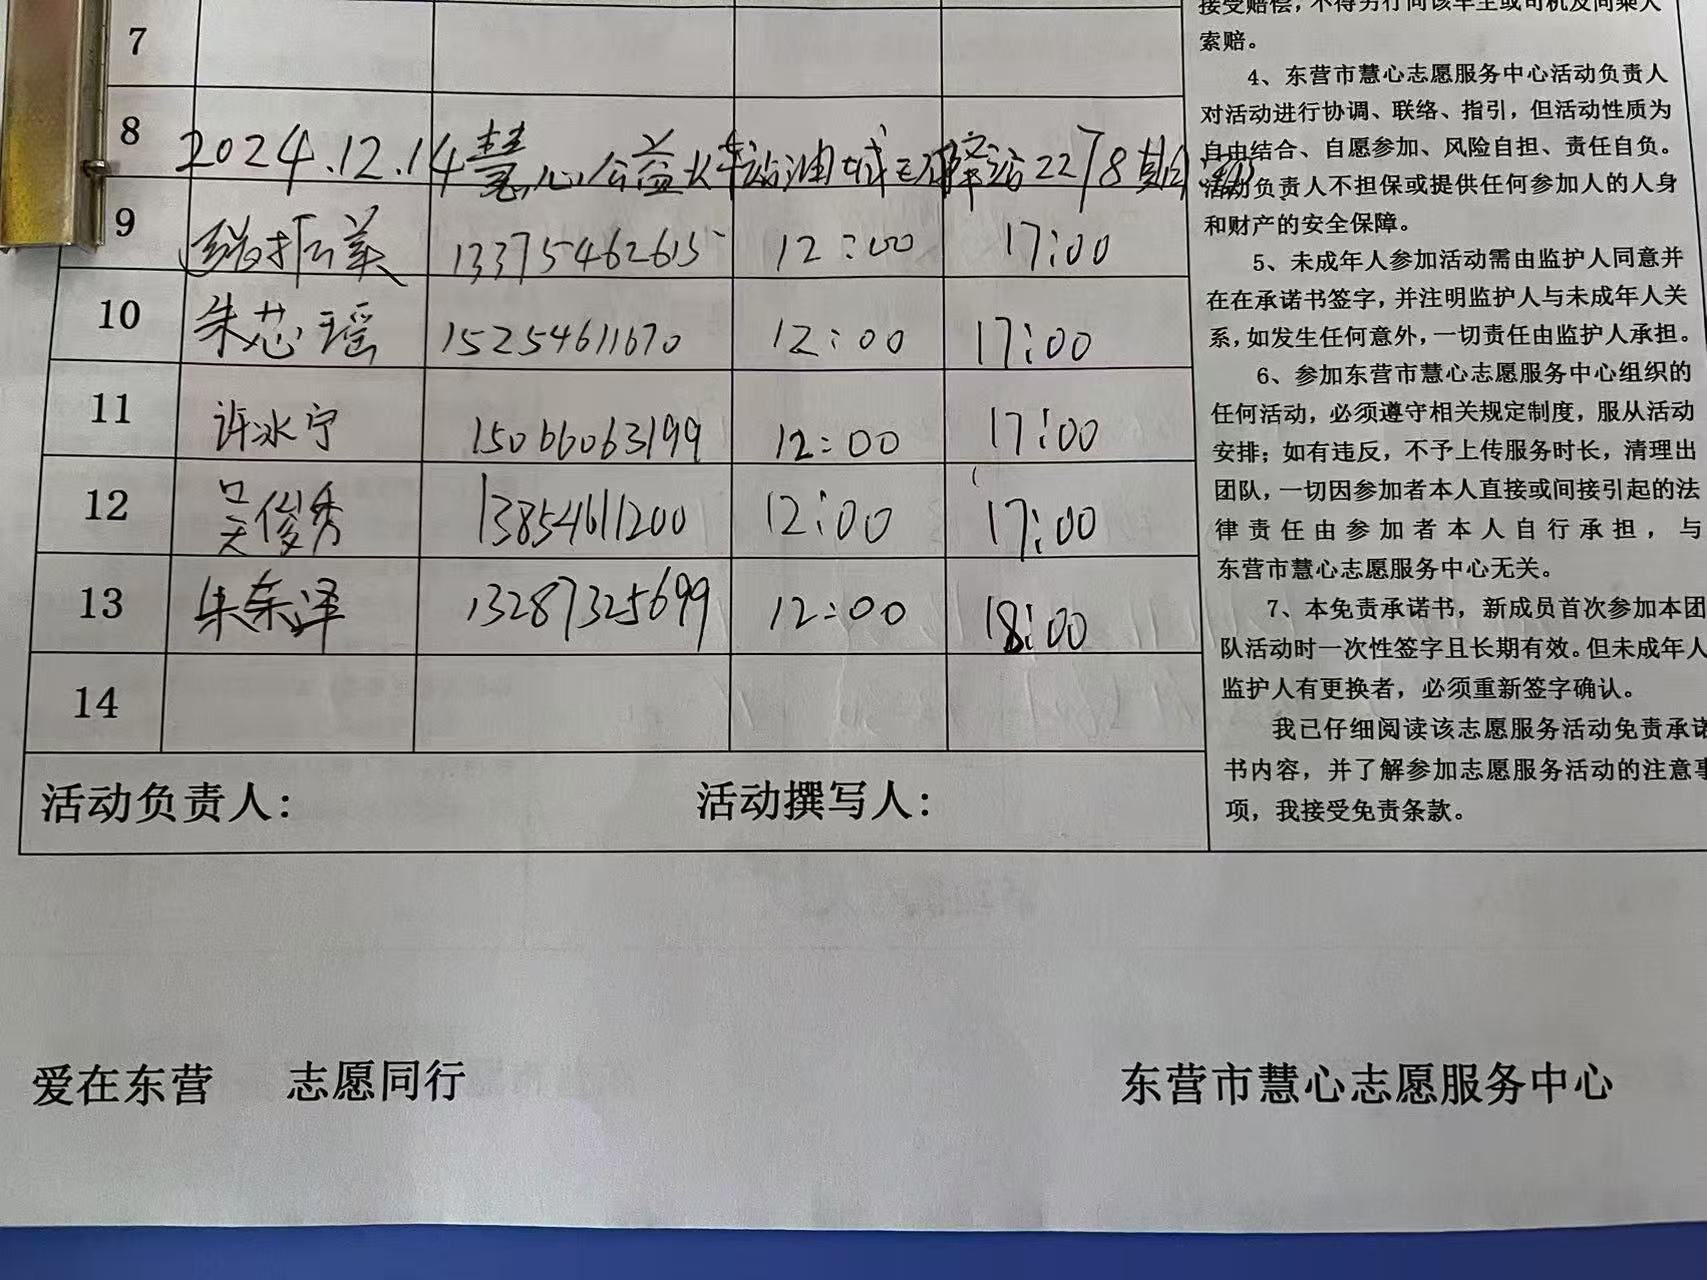 7
8 2024.12.14慧心公益火车站油城 站2278期
9 振美 13375462615 12:00 17:00
10 朱芯瑶 15254611670 12:00 17:00
11 许冰宁 15066063199 12:00 17:00
12 吴俊秀 13854611200 12:00 17:00
13 朱东泽 13287325699 12:00 18:00
14
活动负责人: 活动撰写人:
接受赔偿，不得另行向该车主或司机及同乘人
索赔。
4、东营市慧心志愿服务中心活动负责人
对活动进行协调、联络、指引，但活动性质为
自由结合、自愿参加、风险自担、责任自负。
活动负责人不担保或提供任何参加人的人身
和财产的安全保障。
5、未成年人参加活动需由监护人同意并
在在承诺书签字，并注明监护人与未成年人关
系，如发生任何意外，一切责任由监护人承担。
6、参加东营市慧心志愿服务中心组织的
任何活动，必须遵守相关规定制度，服从活动
安排；如有违反，不予上传服务时长，清理出
团队，一切因参加者本人直接或间接引起的法
律责任由参加者本人自行承担，与
东营市慧心志愿服务中心无关。
7、本免责承诺书，新成员首次参加本团
队活动时一次性签字且长期有效。但未成年人
监护人有更换者，必须重新签字确认。
我已仔细阅读该志愿服务活动免责承诺
书内容，并了解参加志愿服务活动的注意事
项，我接受免责条款。
爱在东营 志愿同行 东营市慧心志愿服务中心